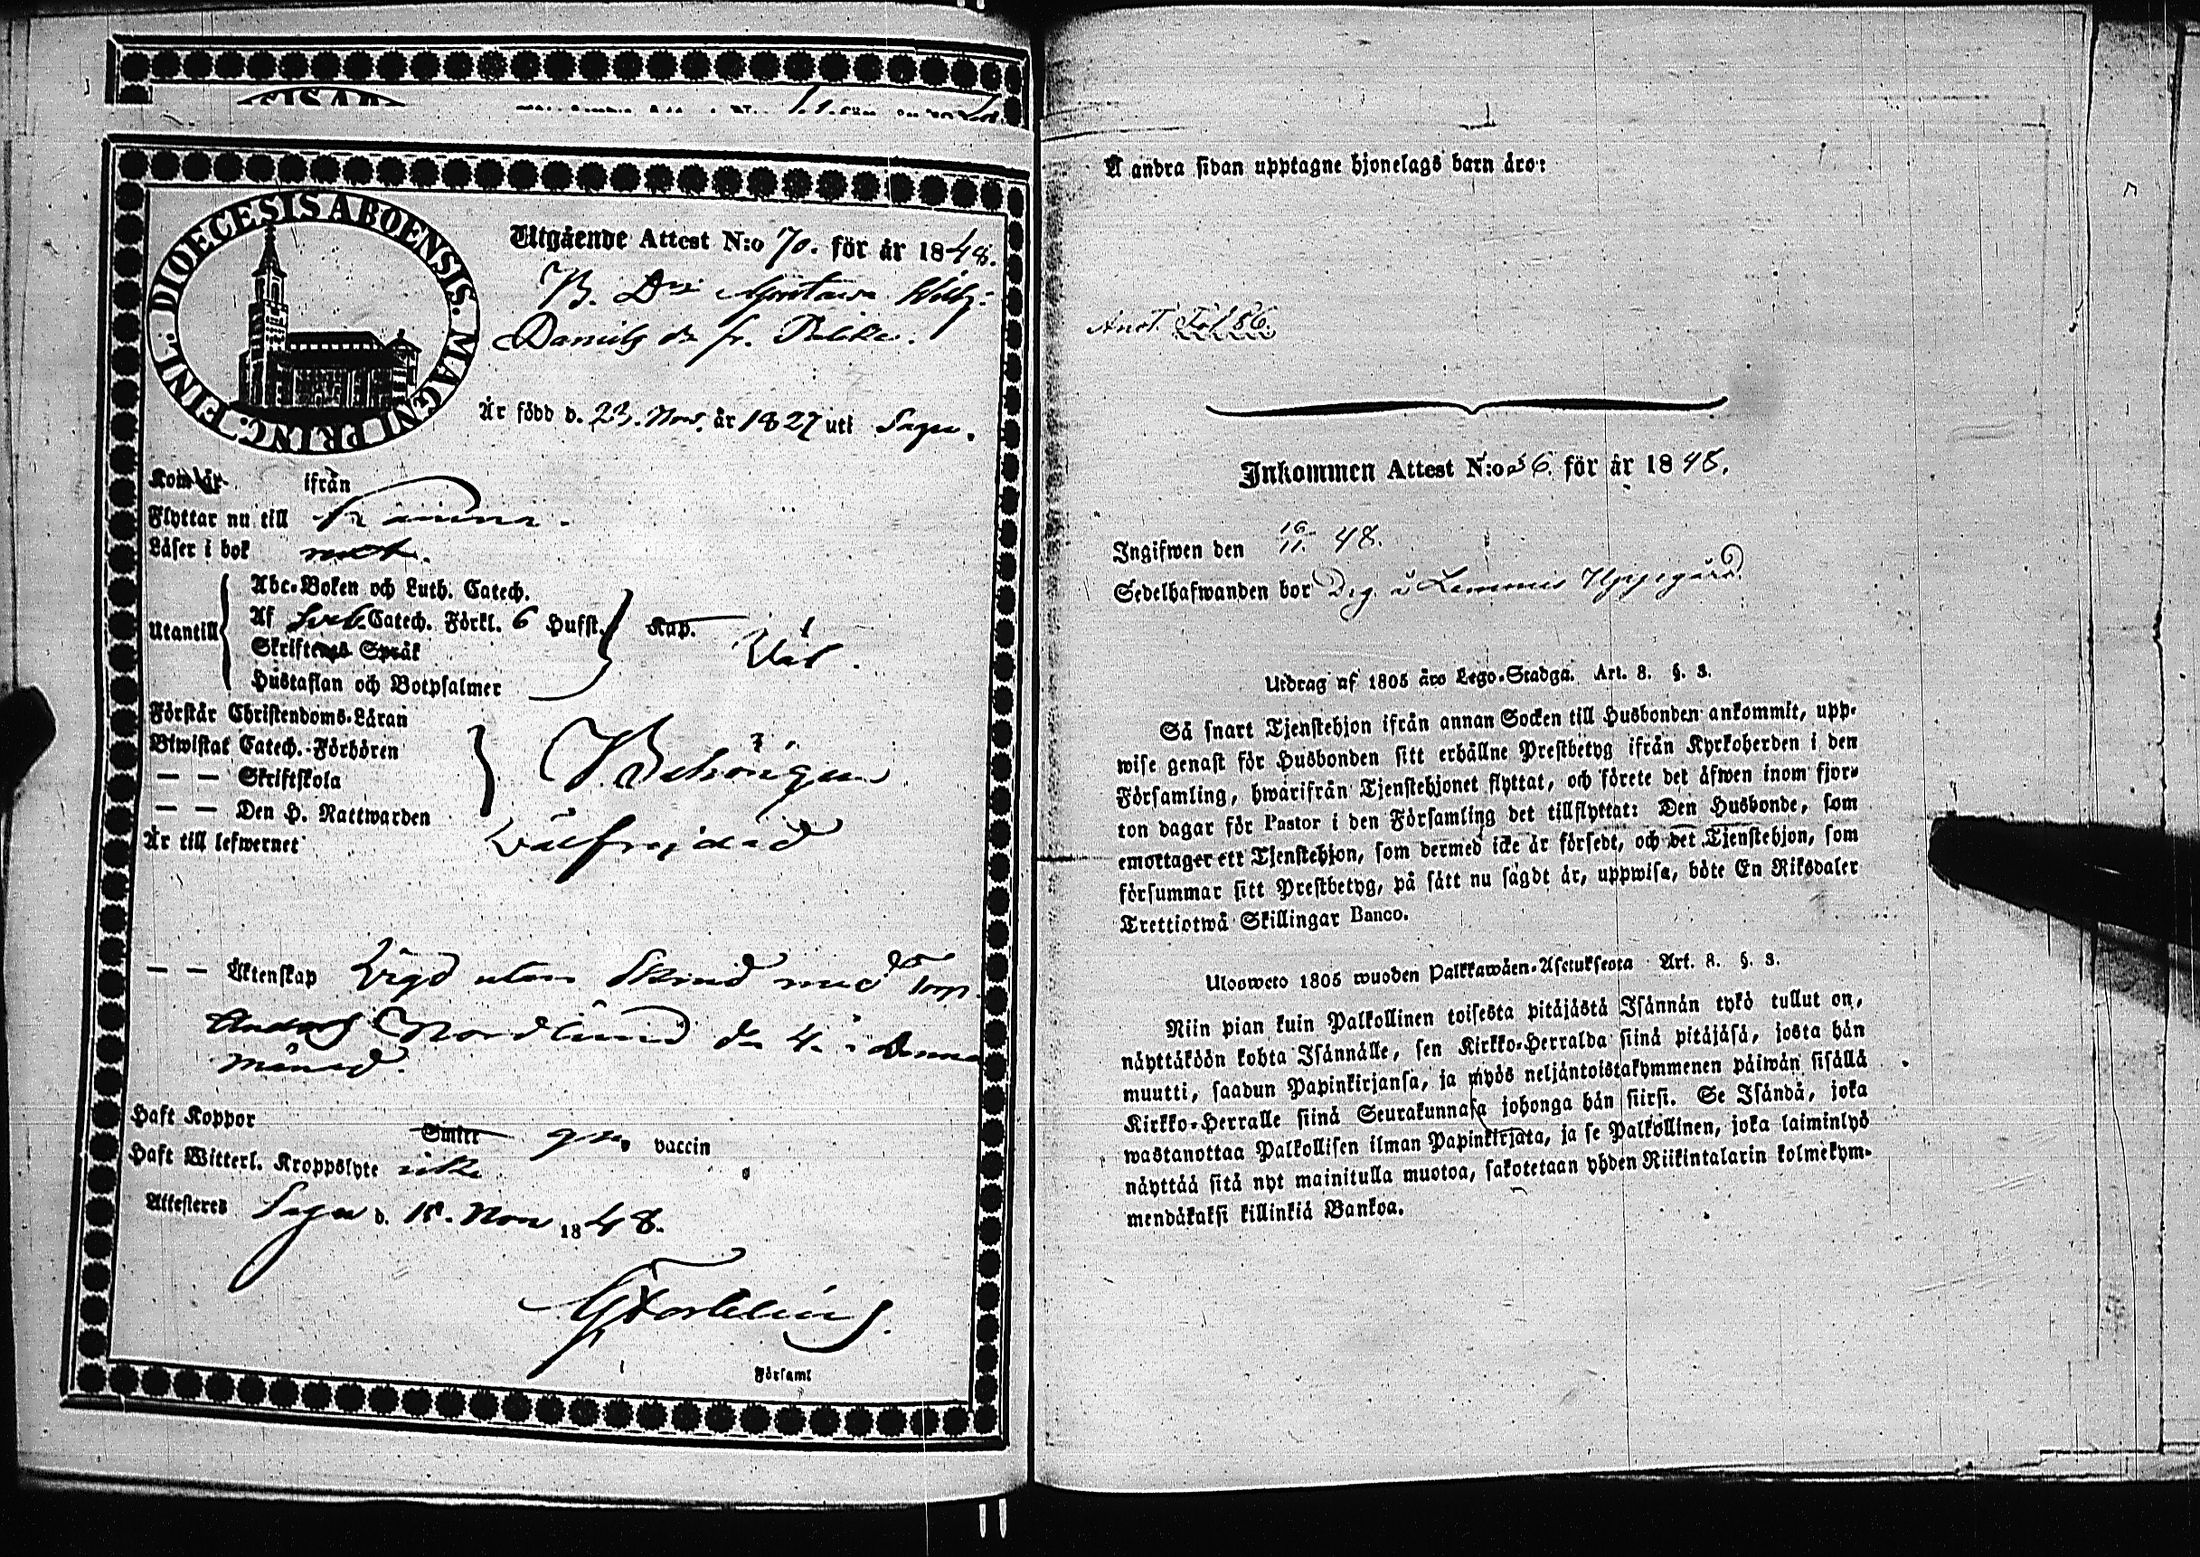 DIOECESIS ABOENSIS. MAGNI PRINC. FINL.
Utgående Attest N:o 70. för år 1848.
B. Dr
Danielsdr fr.
År född d. 23. Nov. år 1827 uti Sagu.
Kom år ifrån
Flyttar nu till
Läser i bok
Abc-Boken och Luth. Catech.
Utantill Af Sveb. Catech. Förkl. 6 Hufst. Kap. Väl.
Skriftenes Språk
Hustaflan och Botpsalmer
Förstår Christendoms-Läran
Biwistat Catech.-Förhören Behörigen
— — Skriftskola
— — Den H. Nattwarden
Är till lefwernet wälfrejdad
— — Äktenskap Vigd utan med
Anders Nordlund d. 4. i denna
månad.
Haft Koppor Smitt gm vaccin
Haft Witterl. Kroppslyte icke
Attesteras Sagu d. 15. Nov 1848.
Församl
A andra sidan upptagne hjonelags barn äro:
Anot. Fol 86.
Inkommen Attest N:o 56. för år 1848.
Ingifwen den 16/11. 48.
Sedelhafwanden bor Dig. å Lemmis Uppgård
Utdrag af 1805 års Lego-Stadga. Art. 8. §. 3.
Så snart Tjenstehjon ifrån annan Socken till Husbonden ankommit, upp-
wise genast för Husbonden sitt erhållne Prestbetyg ifrån Kyrkoherden i den
Församling, hwarifrån Tjenstehjonet flyttat, och förete det äfwen inom fjor-
ton dagar för Pastor i den Församling det tillflyttat: Den Husbonde, som
emottager ett Tjenstehjon, som dermed icke är försedt, och det Tjenstehjon, som
försummar sitt Prestbetyg, på sätt nu sagdt är, uppwisa, böte En Riksdaler
Trettiotwå Skillingar Banco.
Ulosweto 1805 wuoden Palkkawäen-Asetuksesta Art. 8. §. 3.
Niin pian kuin Palkollinen toisesta pitäjästä Isännän tykö tullut on,
näyttäköön kohta Isännälle, sen Kirkko-Herralda siinä pitäjäsä, josta hän
muutti, saadun Papinkirjansa, ja myös neljäntoistakymmenen päiwän sisällä
Kirkko-Herralle siinä Seurakunnasa johonga hän siirsi. Se Isändä, joka
wastanottaa Palkollisen ilman Papinkirjata, ja se Palkollinen, joka laiminlyö
näyttää sitä nyt mainitulla muotoa, sakotetaan yhden Riikintalarin kolmekym-
mendäkaksi killinkiä Bankoa.